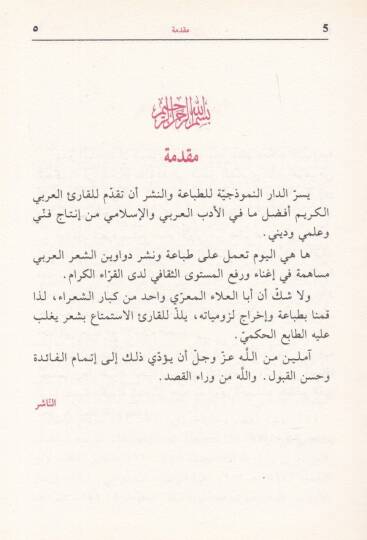 5 مقدمة ٥
بسم الله الرحمن الرحيم
مقدمة
يسرّ الدار النموذجيّة للطباعة والنشر أن تقدّم للقارئ العربي
الكريم أفضل ما في الأدب العربي والإسلامي من إنتاج فنّي
وعلمي وديني.
ها هي اليوم تعمل على طباعة ونشر دواوين الشعر العربي
مساهمة في إغناء ورفع المستوى الثقافي لدى القرّاء الكرام.
ولا شكّ أن أبا العلاء المعرّي واحد من كبار الشعراء، لذا
قمنا بطباعة وإخراج لزومياته، يلذّ للقارئ الاستمتاع بشعر يغلب
عليه الطابع الحكميّ.
آملين من اللَّه عزّ وجلّ أن يؤدّي ذلك إلى إتمام الفائدة
وحسن القبول. واللَّه من وراء القصد.
الناشر